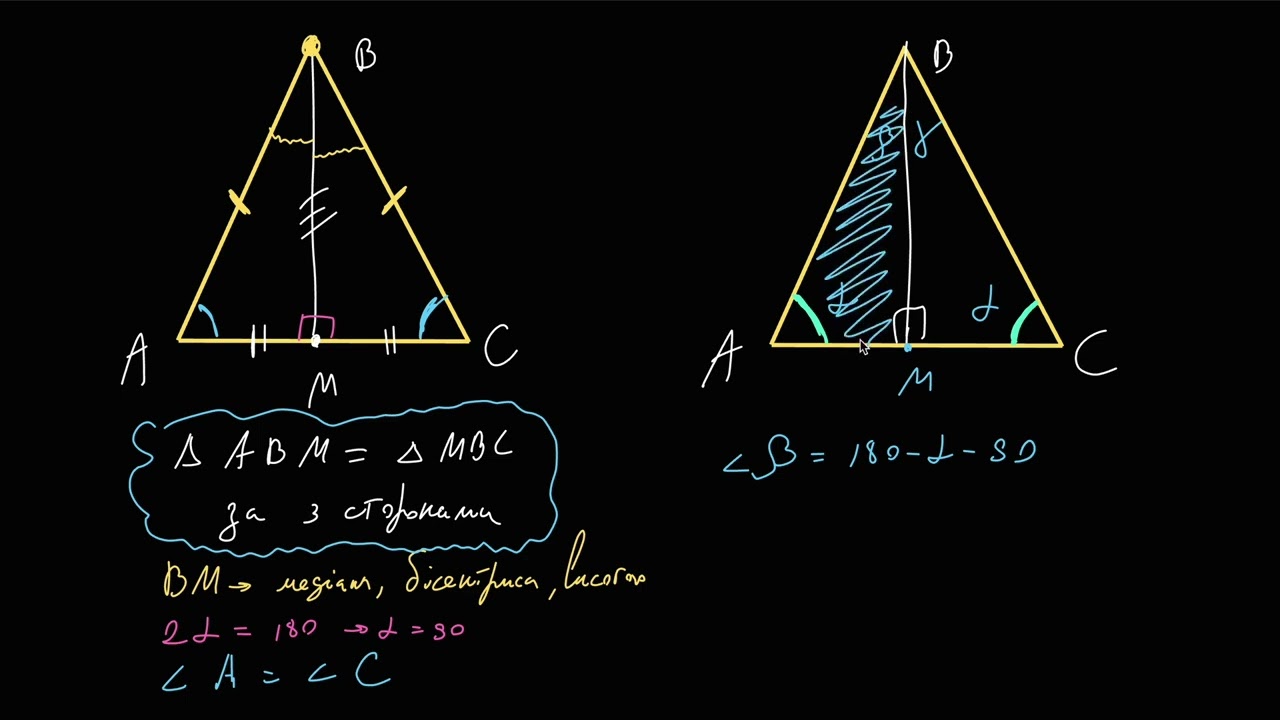 B
A
M
C
Δ ABM = Δ MBC
за 3 сторонами
BM → медіана, бісектриса, висота
2α = 180 → α = 90
∠ A = ∠ C
B
β γ
α α
A
M
C
∠β = 180 - α - 90